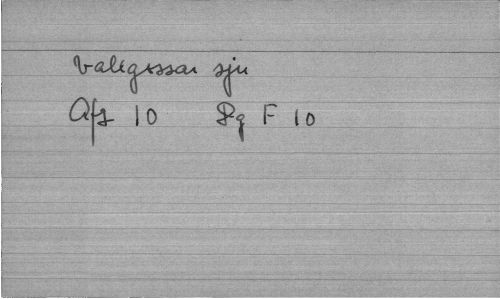 Vallgossar sju
Afs 10 Sg F 10